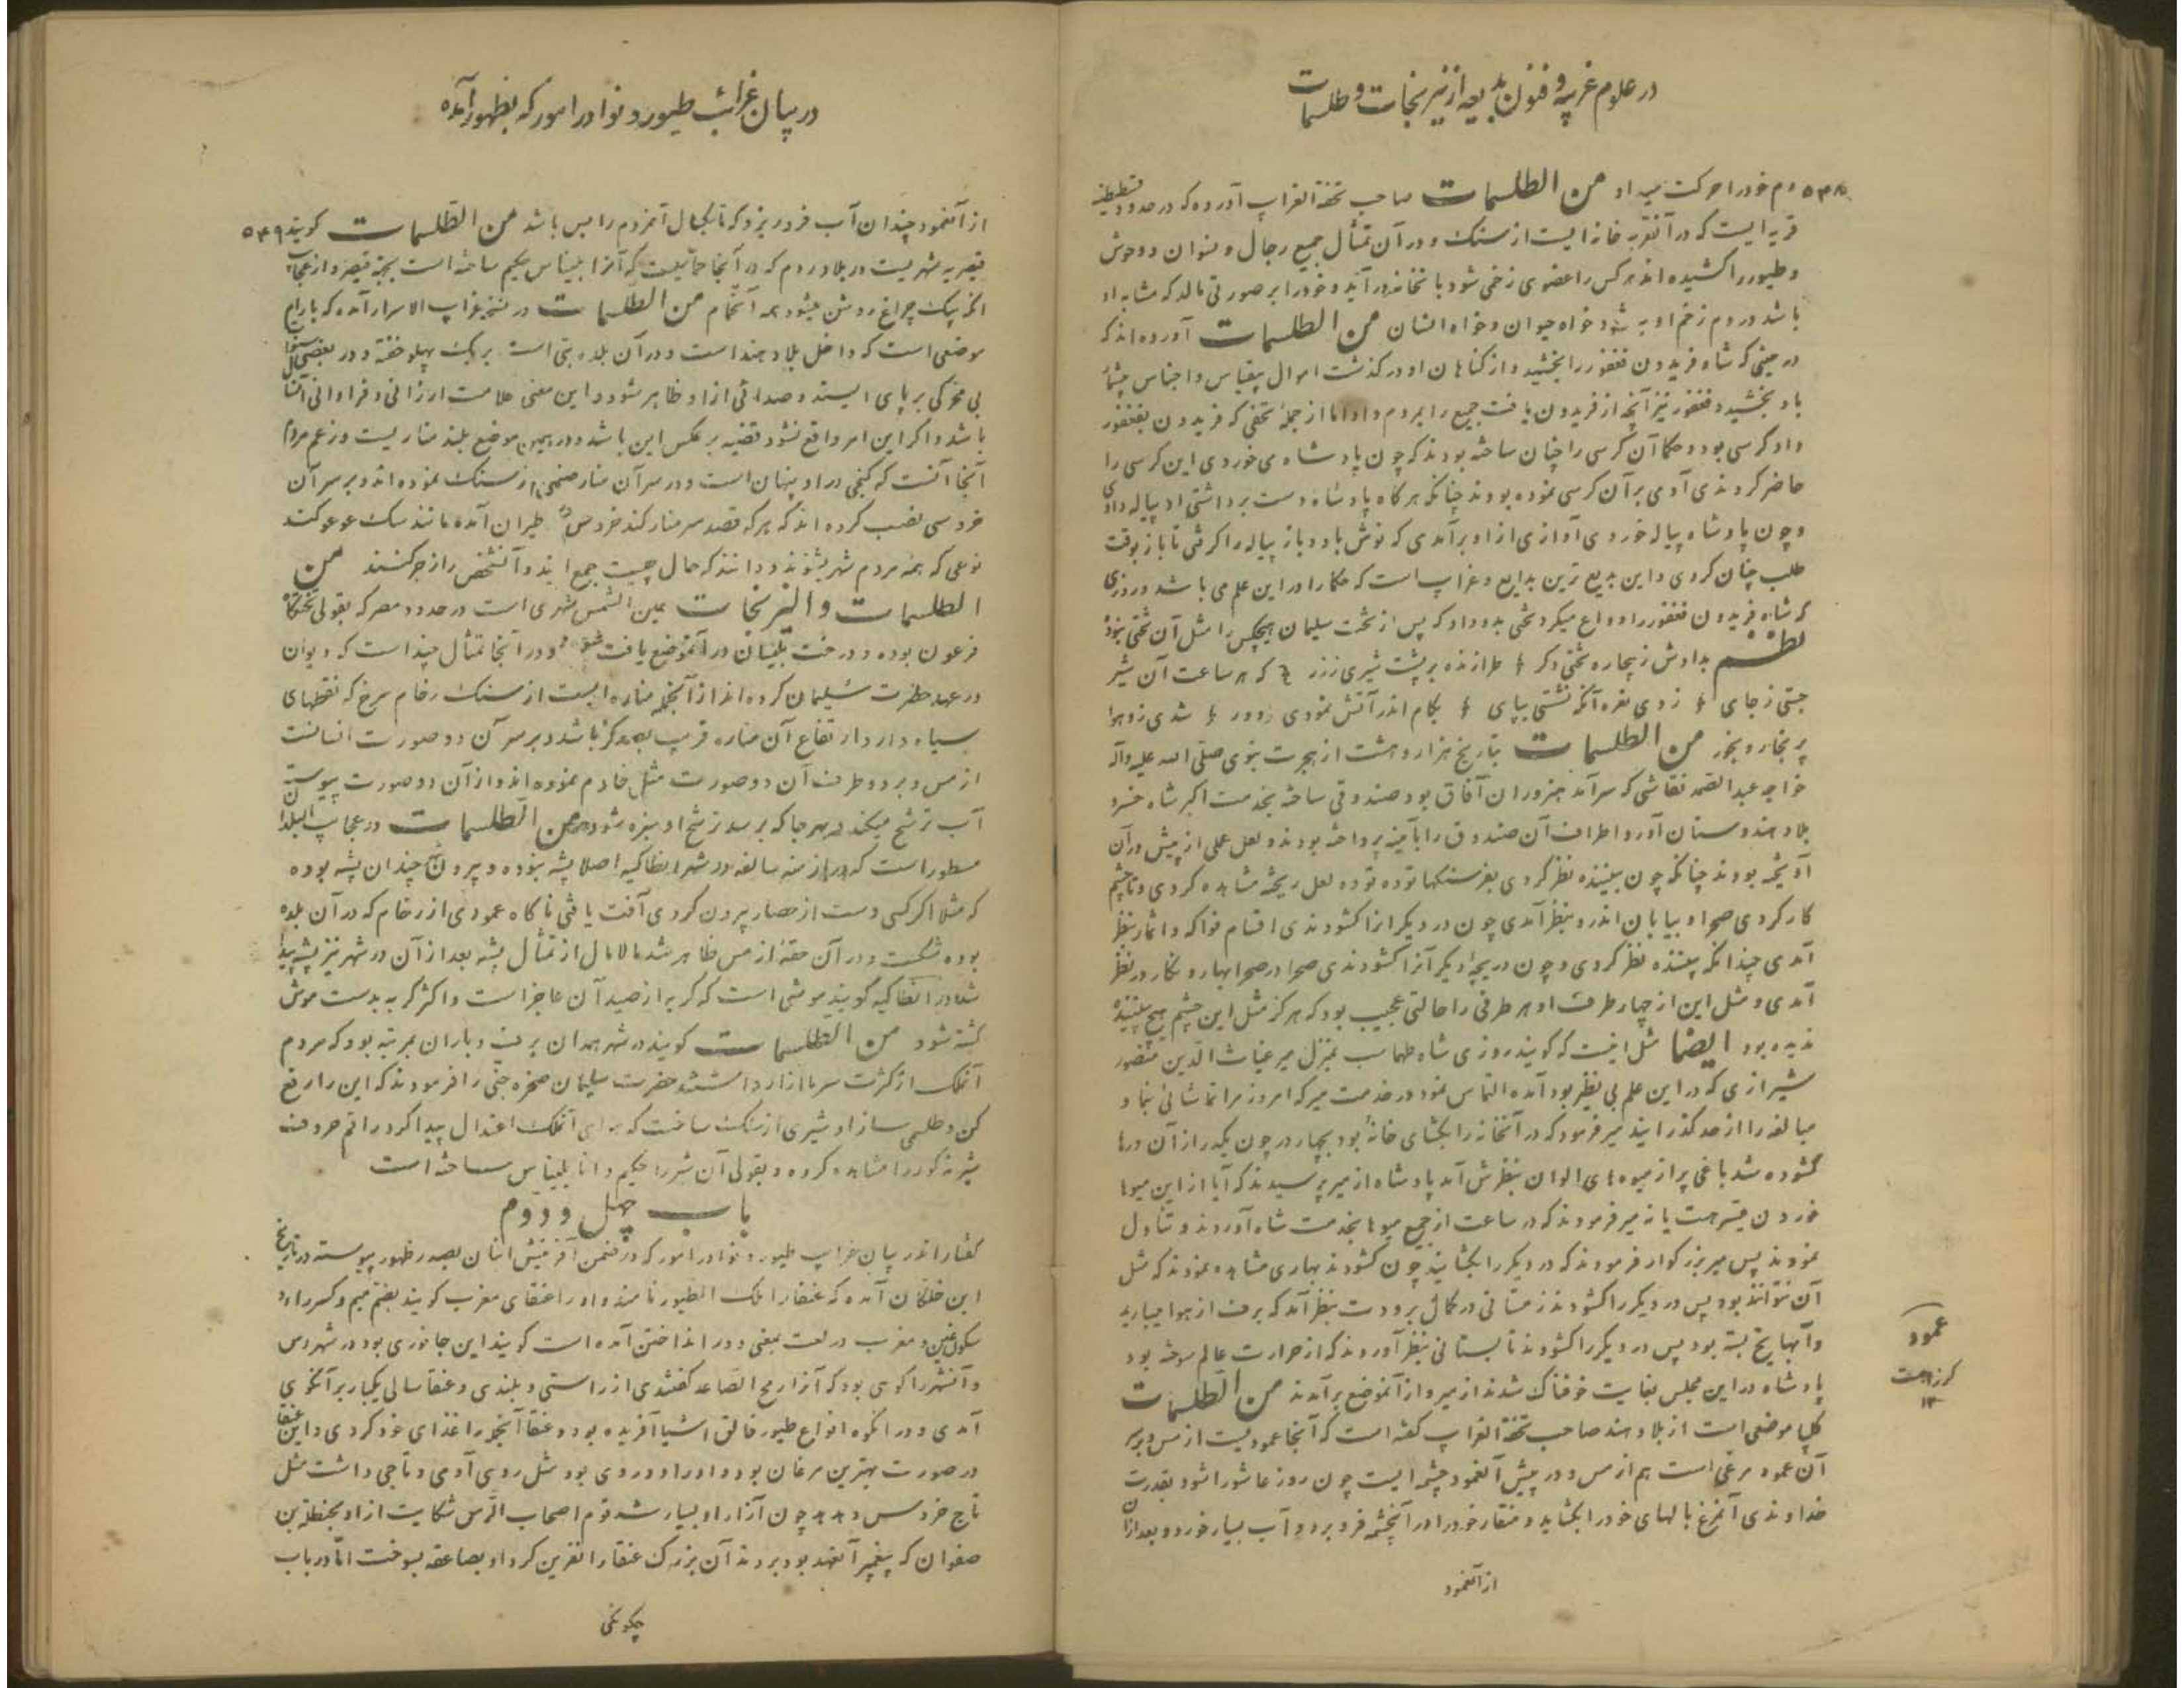 در علوم غریبه و فنون بدیعه از نیرنجات و طلسمات
۵۴۸ دم خود را حرکت میداد من الطلسمات صاحب تحفة الغرایب آورده که در حدود قسطنطنیه
قریه ایست که در آنقریه خانه ایست از سنک و در آن تمثال جمیع رجال و نسوان و وحوش
و طیور را کشیده اند هر کس را عضوی زخمی شود بانخانه در آید و خود را بر صورتی مالد که مشابه او
باشد در دم زخم او به شود خواه حیوان و خواه انسان من الطلسمات آورده اند که
در حینی که شاه فریدون فغفور را بخشید و از کناهان او در کذشت اموال بیقیاس و اجناس
باو بخشید و فغفور نیز آنچه از فریدون یافت جمیع را بمردم داد اما از جملهٔ تحفی که فریدون بفغفور
داد کرسی بود و حکما آن کرسی را چنان ساخته بودند که چون پادشاه می خوردی این کرسی را
حاضر کردندی آدمی بر آن کرسی نموده بودند چنانکه هر کاه پادشاه دست برداشتی او پیاله دادی
و چون پادشاه پیاله خوردی آوازی از او برآمدی که نوش باد و باز پیاله را کرفتی تا باز بوقت
طلب چنان کردی و این بدیع ترین بدایع و غرایب است که حکما را در این علم می باشد و روزی
که شاه فریدون فغفور را وداع میکرد تختی بدو داد که پس از تخت سلیمان هیچکس را مثل آن تختی نبود
نظم بدادش زبیجاره تختی دکر طرازنده بر پشت شیری ززر که هر ساعت آن شیر
جستی ز جای زدی نعره آنکه نشستی بپای بکام اندر آتش نمودی ز دور شدی زو هوا
پر بخار و بخور من الطلسمات بتاریخ هزار و هشت از هجرت نبوی صلی الله علیه وآله
خواجه عبدالصمد نقاشی که سرآمد هنروران آفاق بود صندوقی ساخته بخدمت اکبر شاه خسرو
بلاد هندوستان آورد و اطراف آن صندوق را بآیینه پرداخته بودند و لعل علی از پیش در آن
آویخته بودند چنانکه چون بیننده نظر کردی بفرسنکها توده توده لعل ریخته مشاهده کردی و تا چشم
کار کردی صحرا و بیابان اندر و بنظر آمدی چون در دیکر انرا کشودندی اقسام فواکه و اثمار بنظر
آمدی چندانکه بیننده نظر کردی و چون دریچهٔ دیکر آنرا کشودندی صحرا در صحرا بهار و نکار در نظر
آمدی و مثل این از چهار طرف او هر طرفی را حالتی عجیب بود که هرکز مثل این چشم هیچ بیننده
ندیده بود ایضا مثل اینست که کویند روزی شاه طهماسب بمنزل میر غیاث الدین منصور
شیرازی که در این علم بی نظیر بود آمده التماس نمود در خدمت میر که امروز مرا تماشائی بنما و
مبالغه را از حد کذرانید میر فرمود که در آنخانه را بکشای خانهٔ بود بچهار در چون یکدر از آن درها
کشوده شد باغی پر از میوه های الوان بنظرش آمد پادشاه از میر پرسیدند که آیا از این میوها
خوردن میسر هست یا نه میر فرمودند که در ساعت از جمیع میوها بخدمت شاه آوردند و تناول
نمودند پس میر بزرکوار فرمودند که در دیکر را بکشایند چون کشودند بهاری مشاهده نمودند که مثل
آن نتواند بود پس در دیکر را کشودند زمستانی در کمال برودت بنظر آمد که برف از هوا میبارید
و آبها یخ بسته بود پس در دیکر را کشودند تابستانی بنظر آوردند که از حرارت عالم سوخته بود
پادشاه در این مجلس بغایت خوفناک شدند از میر و از آنموضع برآمدند من الطلسمات
موضعی است از بلاد هند صاحب تحفة الغرایب کفته است که آنجا عمودیست از مس و بر سر
آن عمود مرغی است هم از مس و در پیش آنعمود چشمه ایست چون روز عاشورا شود بقدرت
خداوندی آنمرغ بالهای خود را بکشاید و منقار خود را در آنچشمه فرو برد و آب بسیار خورد و بعد از آن
از آنعمود
عمود
کرز است
۱۲
در بیان غرائب طیور و نوادر امور که بظهور آمده
از آنعمود چندان آب فرو ریزد که تا یکسال آنمردم را بس باشد من الطلسمات کویند ۵۴۹
قیصریه شهریست در بلاد روم که در آنجا حمامیست که آنرا بلیناس حکیم ساخته است بجهة قیصر و از عجایب
انکه بیک چراغ روشن میشود همه آنحمام من الطلسمات در نسخه غرایب الاسرار آمده که بارام
موضعی است که داخل بلاد هند است و در آن بلده بتی است بر یک پهلو خفته و در بعضی سنوات
بی محرکی بر پای ایستد و صدائی از او ظاهر شود و این معنی علامت ارزانی و فراوانی آنسال
باشد و اکر این امر واقع نشود قضیه بر عکس این باشد و در همین موضع بلند مناریست و زعم مردم
آنجا آنست که کنجی در او پنهان است و در سر آن منار صنمی از سنک نموده اند و بر سر آن
خروسی نصب کرده اند که هر که قصد سر منار کند خروس طیران آمده مانند سک عوعو کند
نوعی که همه مردم شهر بشنوند و دانند که حال چیست جمع ایند و آنشخص را زجر کنند من
الطلسمات والنیرنجات عین الشمس شهری است در حدود مصر که بقولی تختکاه
فرعون بوده و درخت بلیسان در آنموضع یافت شود و در آنجا تمثال چند است که دیوان
در عهد حضرت سلیمان کرده اند از آنجمله مناره ایست از سنک رخام سرخ که نقطهای
سیاه دارد ارتفاع آن مناره قریب بصد کز باشد و بر سر آن دو صورت انسانست
از مس و بر دو طرف آن دو صورت مثل خادم نموده اند و از آن دو صورت پیوسته
آب ترشح میکند بهر جا که برسد ترشح او سبزه شود من الطلسمات در عجایب البلدان
مسطور است که در ازمنه سالفه در شهر انطاکیه اصلا پشه نبوده و بیرون چندان پشه بوده
که مثلا اکر کسی دست از حصار بیرون کردی آفت یافتی ناکاه عمودی از رخام که در آن بلده
بوده شکست و در آن حقهٔ از مس ظاهر شد مالامال از تمثال پشه بعد از آن در شهر نیز پشه پیدا
شد و در انطاکیه کویند موشی است که کربه از صید آن عاجز است و اکثر کربه بدست موش
کشته شود من الطلسمات کویند در شهر همدان برف و باران بمرتبه بود که مردم
آنملک از کثرت سرما آزار داشتند حضرت سلیمان صخره جنی را فرمودند که این را رفع
کن و طلسمی ساز او شیری از سنک ساخت که هوای آنملک اعتدال پیدا کرد راقم حروف
شیر مذکور را مشاهده کرده و بقولی آن شیر را حکیم دانا بلیناس ساخته است
باب چهل و دوم
کفتار اندر بیان غرایب طیور و نوادر امور که در ضمن آفرینش انسان بصدر ظهور پیوسته در تاریخ
ابن خلکان آمده که عنقا را ملک الطیور نامند و او را عنقای مغرب کویند بضم میم و کسر راء و
سکون غین و مغرب در لغت بمعنی دور انداختن آمده است کویند این جانوری بود در شهر رس
و آنشهر را کوهی بود که آنرا رمح الصاعد کفتندی از راستی و بلندی و عنقا سالی یکبار بر آنکوه
آمدی و در انکوه انواع طیور خالق اشیا آفریده بود و عنقا آنجمله را غذای خود کردی و این عنقا
در صورت بهترین مرغان بود و او را دو روی بود مثل روی آدمی و تاجی داشت مثل
تاج خروس و چون آزار او بسیار شد قوم اصحاب الرس شکایت از او بحنظلة بن
صفوان که پیغمبر آنعهد بود بردند آن بزرک عنقا را نفرین کرد او بصاعقه بسوخت اما در باب
چکونکی